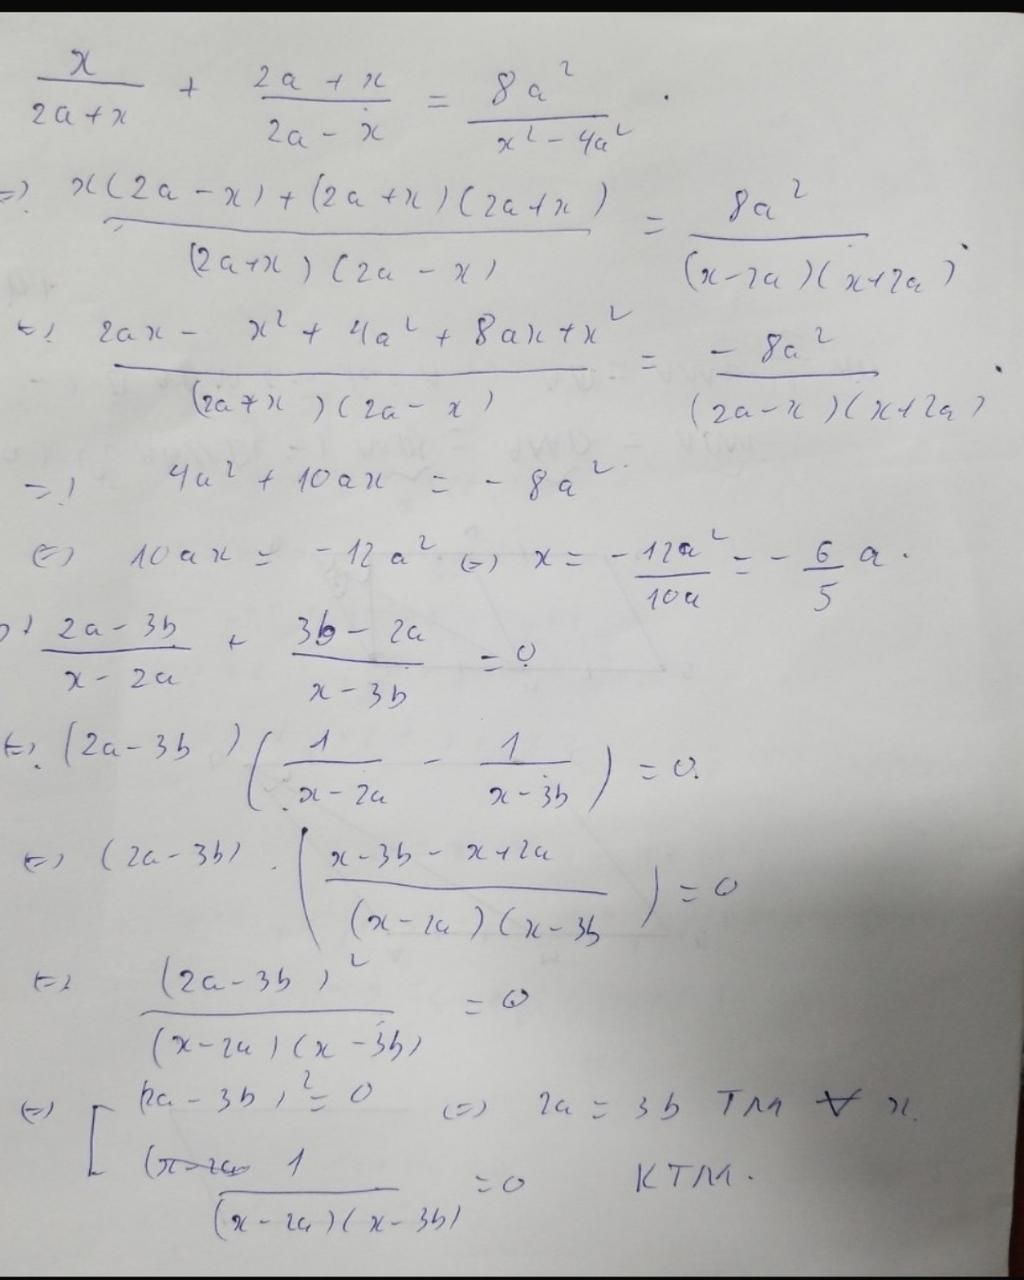 x/(2a+x) + (2a+x)/(2a-x) = 8a²/(x²-4a²) .
=> (x(2a-x)+(2a+x)(2a+x))/((2a+x)(2a-x)) = 8a²/((x-2a)(x+2a))
<=> (2ax - x² + 4a² + 8ax + x²)/((2a+x)(2a-x)) = -8a²/((2a-x)(x+2a)) .
=> 4a² + 10ax = -8a²
<=> 10ax = -12a² <=> x = -12a²/10a = -6/5 a .
b) (2a-3b)/(x-2a) + (3b-2a)/(x-3b) = 0
<=> (2a-3b) (1/(x-2a) - 1/(x-3b)) = 0.
<=> (2a-3b) . ((x-3b-x+2a)/((x-2a)(x-3b)) = 0
<=> (2a-3b)²/((x-2a)(x-3b)) = 0
<=> [ (2a-3b)² = 0 <=> 2a = 3b TM ∀ x.
1/((x-2a)(x-3b)) = 0 KTM.